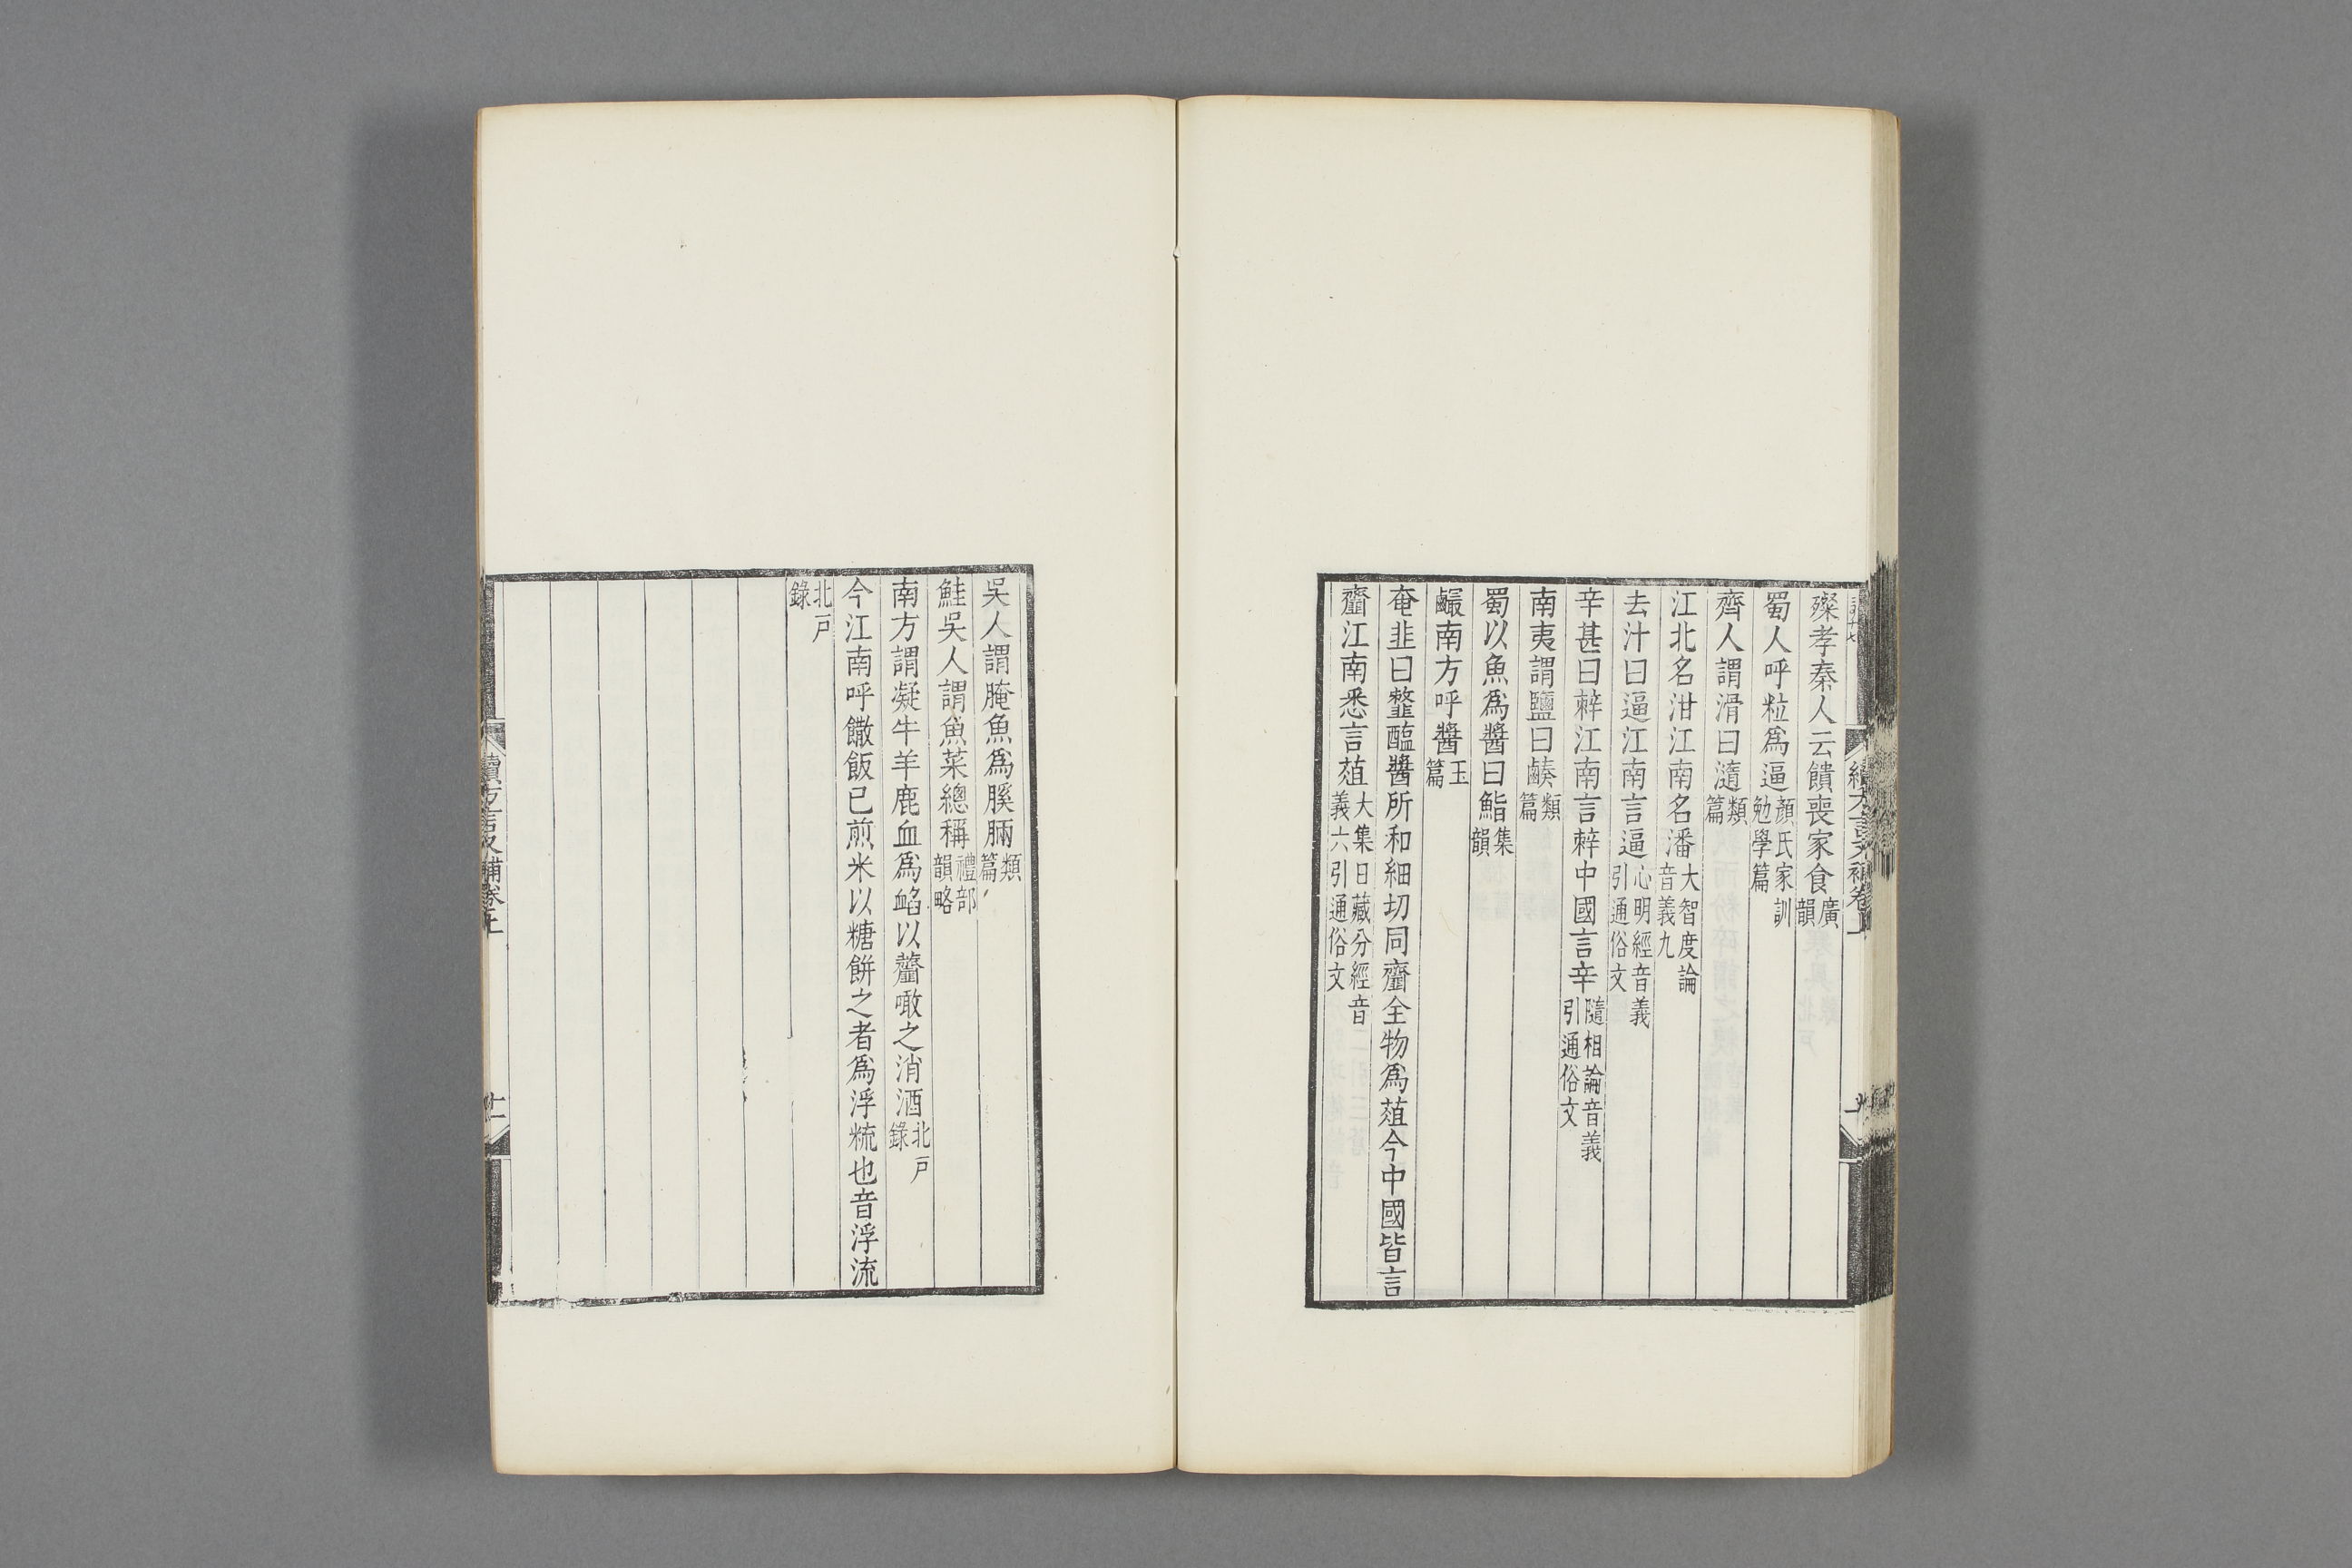 孝秦人云饋喪家食廣韻
蜀人呼粒爲逼顏氏家訓勉學篇
齊人謂滑曰瀡類篇
江北名泔江南名潘大智度論音義九
去汁曰逼江南言逼心明經音義引通俗文
辛甚曰辢江南言辢中國言辛隨相論音義引通俗文
南夷謂鹽曰類篇
蜀以魚爲醬曰鮨集韻
南方呼醬玉篇
奄韭曰韲醢醬所和細切同齏全物爲葅今中國皆言
齏江南悉言葅大集日藏分經音義六引通俗文
續方言又補卷上
吳人謂腌魚爲膎脼類篇
鮭吳人謂魚菜總稱禮部韻略
南方謂凝牛羊鹿血爲䘓以虀噉之消酒北戶錄
今江南呼饊飯已煎米以糖餅之者爲浮粇也音浮流
北戶錄
續方言又補卷上
十一